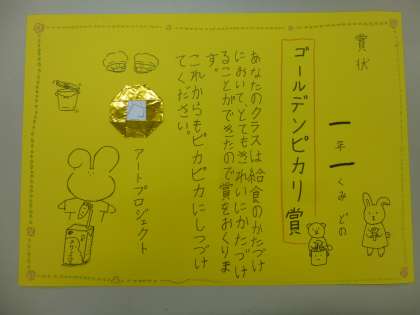 賞状
一年一くみどの
ゴールデンピカリ賞
あなたのクラスは給食のかたづけ
において、とてもきれいにかたづけ
ることができたので賞をおくりま
す。
これからもピカピカにしつづけ
てください。
アートプロジェクト